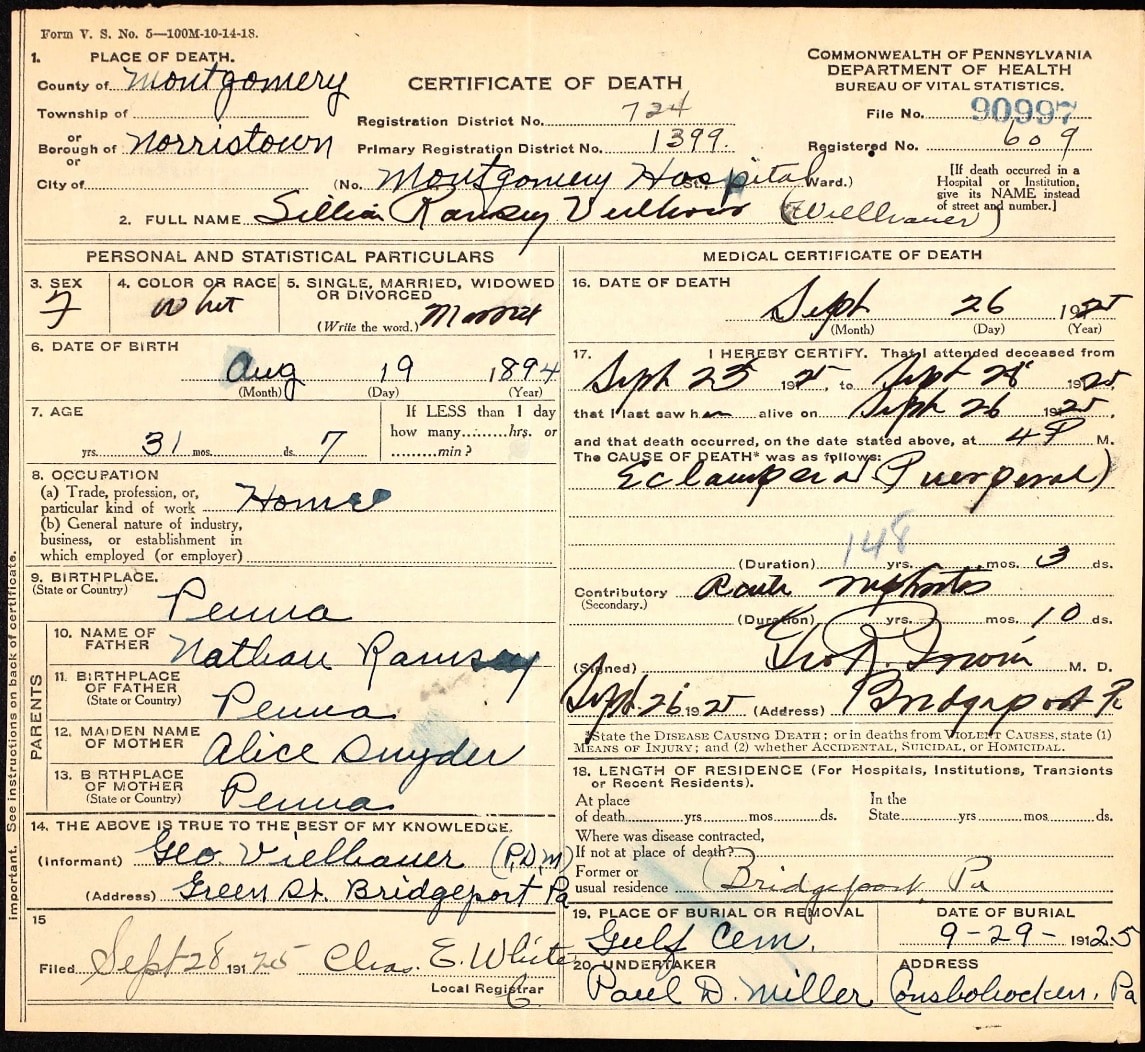 Form V. S. No. 5—100M-10-14-18.
1. PLACE OF DEATH.
County of Montgomery
Township of
or
Borough of Norristown
or
City of
CERTIFICATE OF DEATH
Registration District No. 724
Primary Registration District No. 1399.
(No. Montgomery Hospital St. Ward.)
COMMONWEALTH OF PENNSYLVANIA
DEPARTMENT OF HEALTH
BUREAU OF VITAL STATISTICS.
File No. 90997
Registered No. 609
[If death occurred in a
Hospital or Institution,
give its NAME instead
of street and number.]
2. FULL NAME Lillian Ramsey
PERSONAL AND STATISTICAL PARTICULARS
3. SEX
F
4. COLOR OR RACE
Whit
5. SINGLE, MARRIED, WIDOWED
OR DIVORCED
(Write the word.)
6. DATE OF BIRTH
Aug 19 1894
(Month) (Day) (Year)
7. AGE
31 yrs. mos. 7 ds.
If LESS than 1 day
how many........hrs. or
.........min?
8. OCCUPATION
(a) Trade, profession, or,
particular kind of work Home
(b) General nature of industry,
business, or establishment in
which employed (or employer)
9. BIRTHPLACE.
(State or Country)
Penna
PARENTS
10. NAME OF
FATHER
Nathan Ramsey
11. BIRTHPLACE
OF FATHER
(State or Country)
Penna
12. MAIDEN NAME
OF MOTHER
Alice Snyder
13. BIRTHPLACE
OF MOTHER
(State or Country)
Penna
14. THE ABOVE IS TRUE TO THE BEST OF MY KNOWLEDGE.
(Informant) Geo. Vielhauer (P.D.M)
(Address) Green St. Bridgeport Pa
15
Filed Sept 28 191 25 Chas. E. White
Local Registrar
Important. See instructions on back of certificate.
MEDICAL CERTIFICATE OF DEATH
16. DATE OF DEATH
Sept 26 1925
(Month) (Day) (Year)
17. I HEREBY CERTIFY. That I attended deceased from
Sept 23 1925, to Sept 1925
that I last saw h alive on Sept 26 1925,
and that death occurred, on the date stated above, at 4 P M.
The CAUSE OF DEATH* was as follows:
Eclampsia Puerperal)
148
(Duration) yrs. mos. 3 ds.
Contributory Acute nephritis
(Secondary.)
(Duration) yrs. mos. 10 ds.
(Signed) Geo. R. Irwin M. D.
Sept. 26 1925 (Address) Bridgeport Pa
*State the DISEASE CAUSING DEATH; or in deaths from VIOLENT CAUSES, state (1)
MEANS OF INJURY; and (2) whether ACCIDENTAL, SUICIDAL, or HOMICIDAL.
18. LENGTH OF RESIDENCE (For Hospitals, Institutions, Transients
or Recent Residents).
At place
of death yrs mos ds.
In the
State yrs mos ds.
Where was disease contracted,
If not at place of death?
Former or
usual residence Bridgeport Pa
19. PLACE OF BURIAL OR REMOVAL
Gulf Cem.
DATE OF BURIAL
9-29- 1925
20 UNDERTAKER
Paul D. Miller
ADDRESS
Conshohocken, Pa